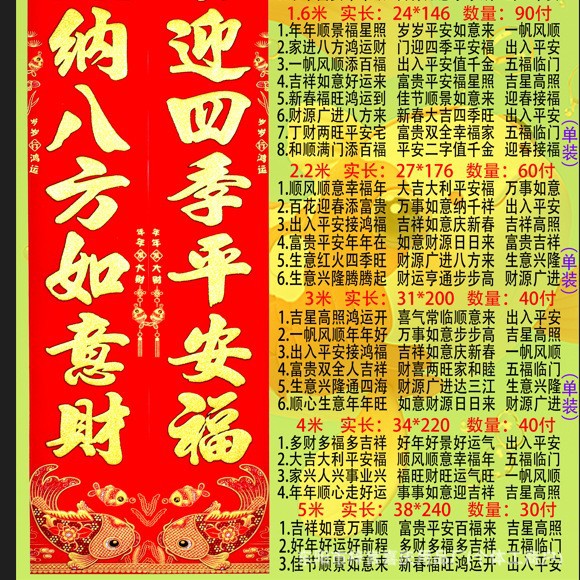 迎四季平安福
纳八方如意財
岁岁行鸿运
岁岁行鸿运
年年发大财
年年发大财
1.6米 实长：24*146 数量：90付
1.年年顺景福星照 岁岁平安如意来 一帆风顺
2.家进八方鸿运财 门迎四季平安福 出入平安
3.一帆风顺添百福 出入平安值千金 五福临门
4.吉祥如意好运来 富贵平安福星照 吉星高照
5.新春福旺鸿运到 佳节顺景如意来 迎春接福
6.财源广进八方来 新春大吉四季旺 出入平安
7.丁财两旺平安宅 富贵双全幸福家 五福临门
8.和顺满门添百福 平安二字值千金 迎春接福
(单装)
2.2米 实长：27*176 数量：60付
1.顺风顺意幸福年 大吉大利平安福 万事如意
2.百花迎春添富贵 万事如意纳千祥 出入平安
3.出入平安接鸿福 吉祥如意庆新春 吉祥高照
4.富贵平安年年在 如意财源日日来 富贵吉祥
5.生意红火四季旺 财源广进八方来 生意兴隆
6.生意兴隆腾腾起 财运亨通步步高 财源广进
(单装)
3米 实长：31*200 数量：40付
1.吉星高照鸿运开 喜气常临顺意来 出入平安
2.一帆风顺年年好 万事如意步步高 吉星高照
3.出入平安接鸿福 吉祥如意庆新春 一帆风顺
4.富贵双全人吉祥 财喜两旺家和睦 五福临门
5.生意兴隆通四海 财源广进达三江 生意兴隆
6.顺心生意年年旺 如意财源日日来 财源广进
(单装)
4米 实长：34*220 数量：40付
1.多财多福多吉祥 好年好景好运气 出入平安
2.大吉大利平安福 顺风顺意幸福年 五福临门
3.家兴人兴事业兴 福旺财旺运气旺 一帆风顺
4.年年顺心走好运 事事如意迎吉祥 吉星高照
5米 实长：38*240 数量：30付
1.吉祥如意万事顺 富贵平安百福来 吉星高照
2.好年好运好前顺 多财多福多吉祥 五福临门
3.佳节顺景如意来 新春福旺鸿运开 出入平安